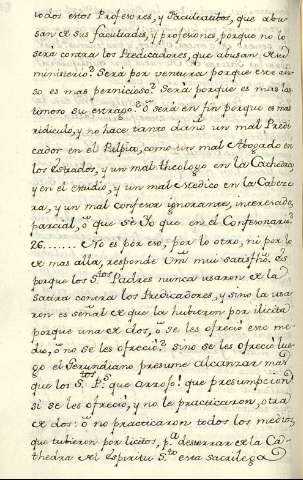 todos estos Profesores, y Facultatibos, que abu
san de sus facultades, y profesiones porque no lo
será contra los Predicadores, que abusan de su
ministerio? Será por ventura porque este abu
so es mas pernicioso? Sera porque es mas las
timoso su estrago? ó será en fin porque es mas
ridiculo, y no hace tanto daño un mal Predi
cador en el Pulpito, como un mal Abogado en
los Estrados, y un mal theologo en la Cathedra
y en el estudio, y un mal Medico en la Cabeze
ra, y un mal Confesor ignorante, interesado,
parcial, ó que sé Yo que en el Confesonario?
26....... No es por eso, por lo otro, ni por lo
de mas alla, responde Vm. mui satisfho. Es
porque los Stos Padres nunca usaron de la
satira contra los Predicadores, y sino la usa
ron es señal de que la hubieron por ilicita
porque una de dos, ó se les ofreció este me
dio, ó no se les ofreció? sino se les ofreció lue
go el Gerundiano presume alcanzar mas
que los Stos Ps. que arrojo! que presumpcion!
si se les ofreció, y no le practicaron, otra
de dos: ó no practicaron todos los medios,
que tubieron por licitos, pa. desterrar de la Ca-
thedra del Espiritu Sto esta sacrilega